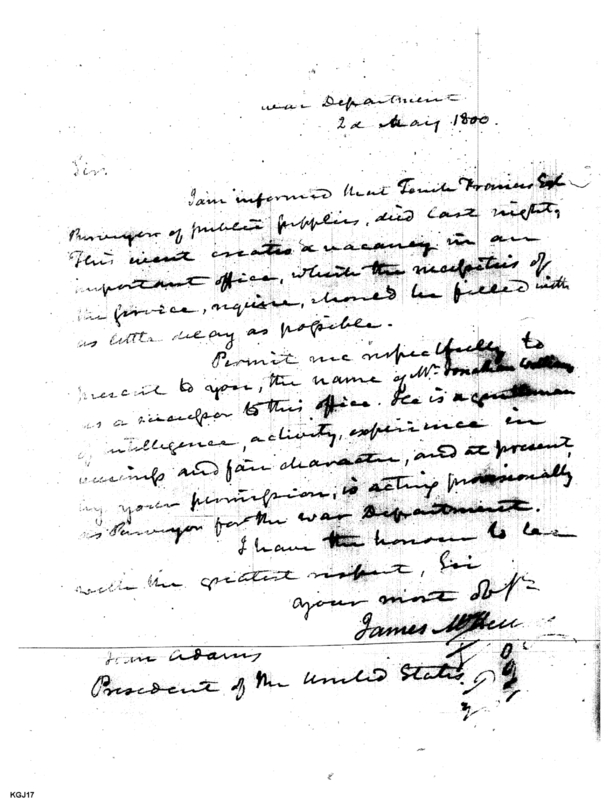 war Department
2d May 1800.
Sir.
I am informed that Tench Francis Esq
Purveyor of public supplies, died last night,
This event creates a vacancy in an
important office, which the necessities of
the service, require, should be filled with
as little delay as possible.
Permit me respectfully to
present to you, the name of Mr. Jonathan Williams
as a successor to this office. He is a gentleman
of intelligence, activity, experience in
and fair character, and at present,
by your permission, is acting provisionally
as Purveyor for the war Department.
I have the honour to be
with the greatest respect, Sir
your most obt
James McHenry
John Adams
President of the United States.
KGJ17